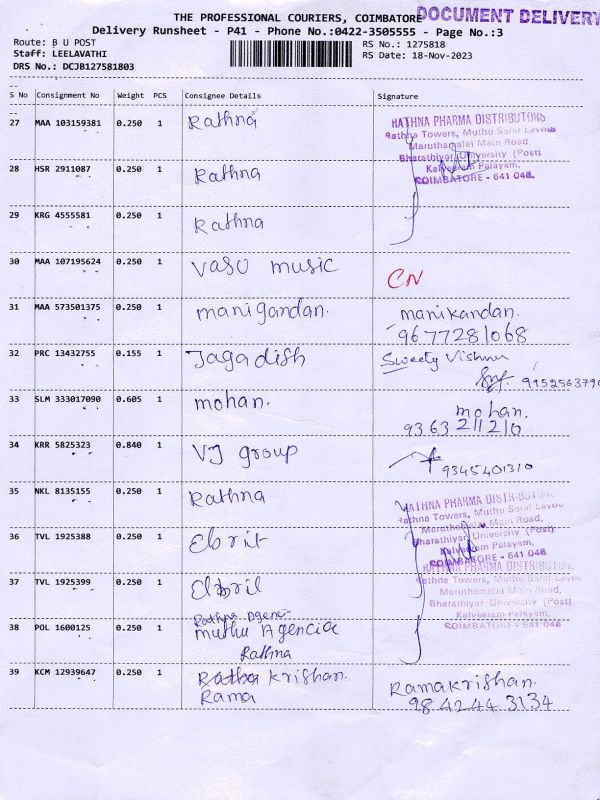 THE PROFESSIONAL COURIERS, COIMBATORE
DOCUMENT DELIVERY
Delivery Runsheet - P41 - Phone No.:0422-3505555 - Page No.:3
Route: B U POST
RS No.: 1275818
Staff: LEELAVATHI
RS Date: 18-Nov-2023
DRS No.: DCJB127581803
S No Consignment No Weight PCS Consignee Details Signature
27 MAA 103159381 0.250 1 Rathna
RATHNA PHARMA DISTRIBUTORS
Rathna Towers, Muthu Sarat Layou
Maruthamalai Main Road,
Bharathiyar University (Post)
Kalveeram Palayam,
COIMBATORE - 641 046.
28 HSR 2911087 0.250 1 Rathna
29 KRG 4555581 0.250 1 Rathna
30 MAA 107195624 0.250 1 Vasu music CN
31 MAA 573501375 0.250 1 manigandan. manikandan.
9677281068
32 PRC 13432755 0.155 1 Jagadish Sweety Vishnu
33 SLM 333017090 0.605 1 mohan. mohan.
9363211210
34 KRR 5825323 0.840 1 VJ group
9345401310
35 NKL 8135155 0.250 1 Rathna
RATHNA PHARMA DISTRIBUTOR
Rathna Towers, Muthu Sarat Layou
Maruthamalai Main Road,
Bharathiyar University (Post)
Kalveeram Palayam,
COIMBATORE - 641 046
36 TVL 1925388 0.250 1
RATHNA PHARMA DISTRIBUTOR
Rathna Towers, Muthu Sarat Layou
Maruthamalai Main Road,
Bharathiyar University (Post)
Kalveeram Palayam,
COIMBATORE - 641 046
37 TVL 1925399 0.250 1
38 POL 1600125 0.250 1 muthu Agencia
Rathna
39 KCM 12939647 0.250 1 krishnan. Ramakrishan.
Rama 9842443134